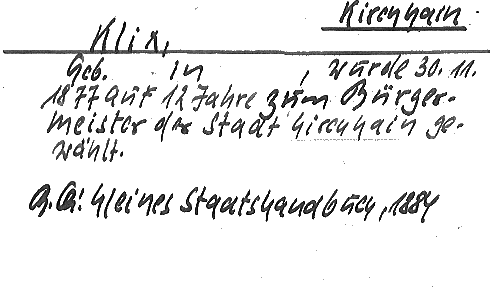 Kirchhain
Klix,
Geb. in , wurde 30. 11.
1877 auf 12 Jahre zum Bürger-
meister der Stadt Kirchhain ge-
wählt.
Kleines Staatshandbuch, 1884